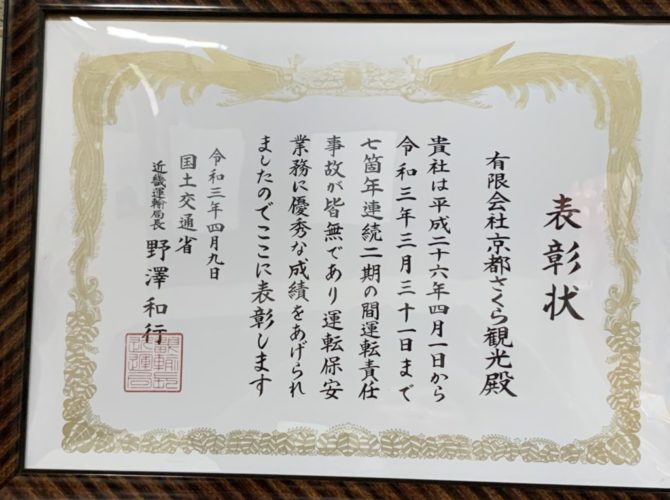 表彰状
有限会社京都さくら観光殿
貴社は平成二十六年四月一日から
令和三年三月三十一日まで
七箇年連続二期の間運転責任
事故が皆無であり運転保安
業務に優秀な成績をあげられ
ましたのでここに表彰します
令和三年四月九日
国土交通省
近畿運輸局長 野澤和行